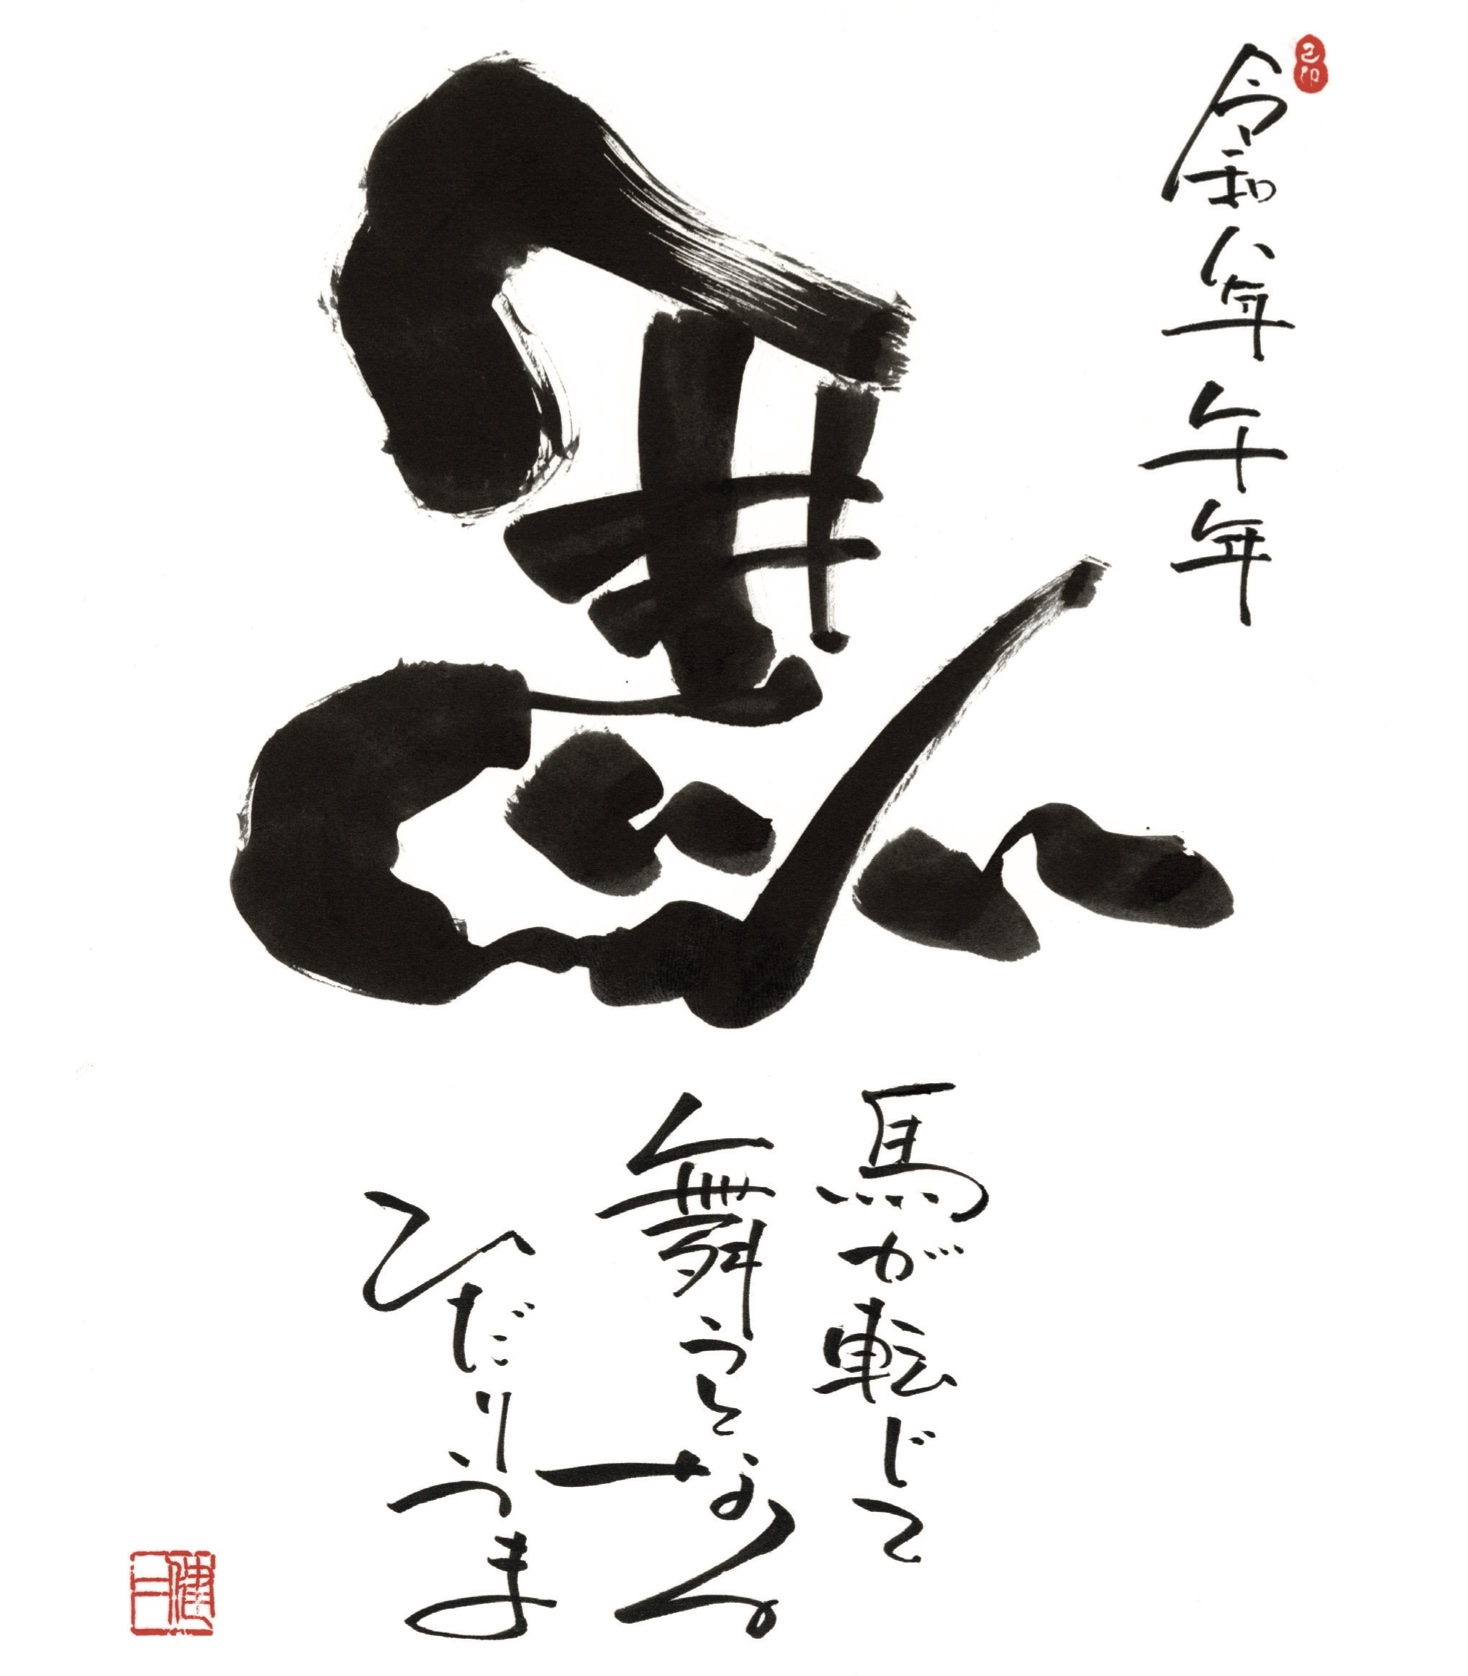 令和八年 午年
馬
馬が転じて
舞うとなる
ひだりうま